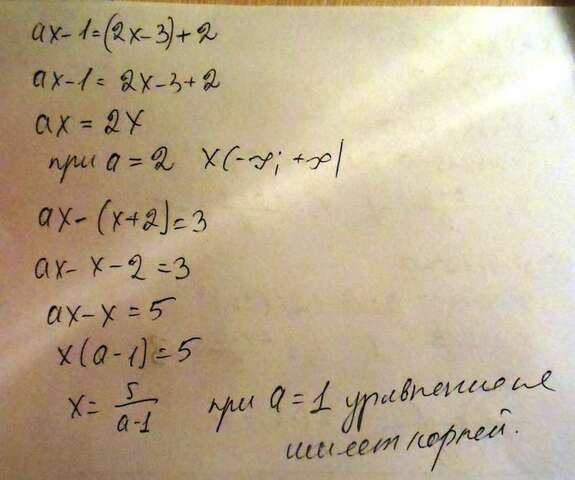 ax-1=(2x-3)+2
ax-1=2x-3+2
ax=2x
при a=2 x(-∞; +∞)
ax-(x+2)=3
ax-x-2=3
ax-x=5
x(a-1)=5
x=5/(a-1) при a=1 уравнение не
имеет корней.